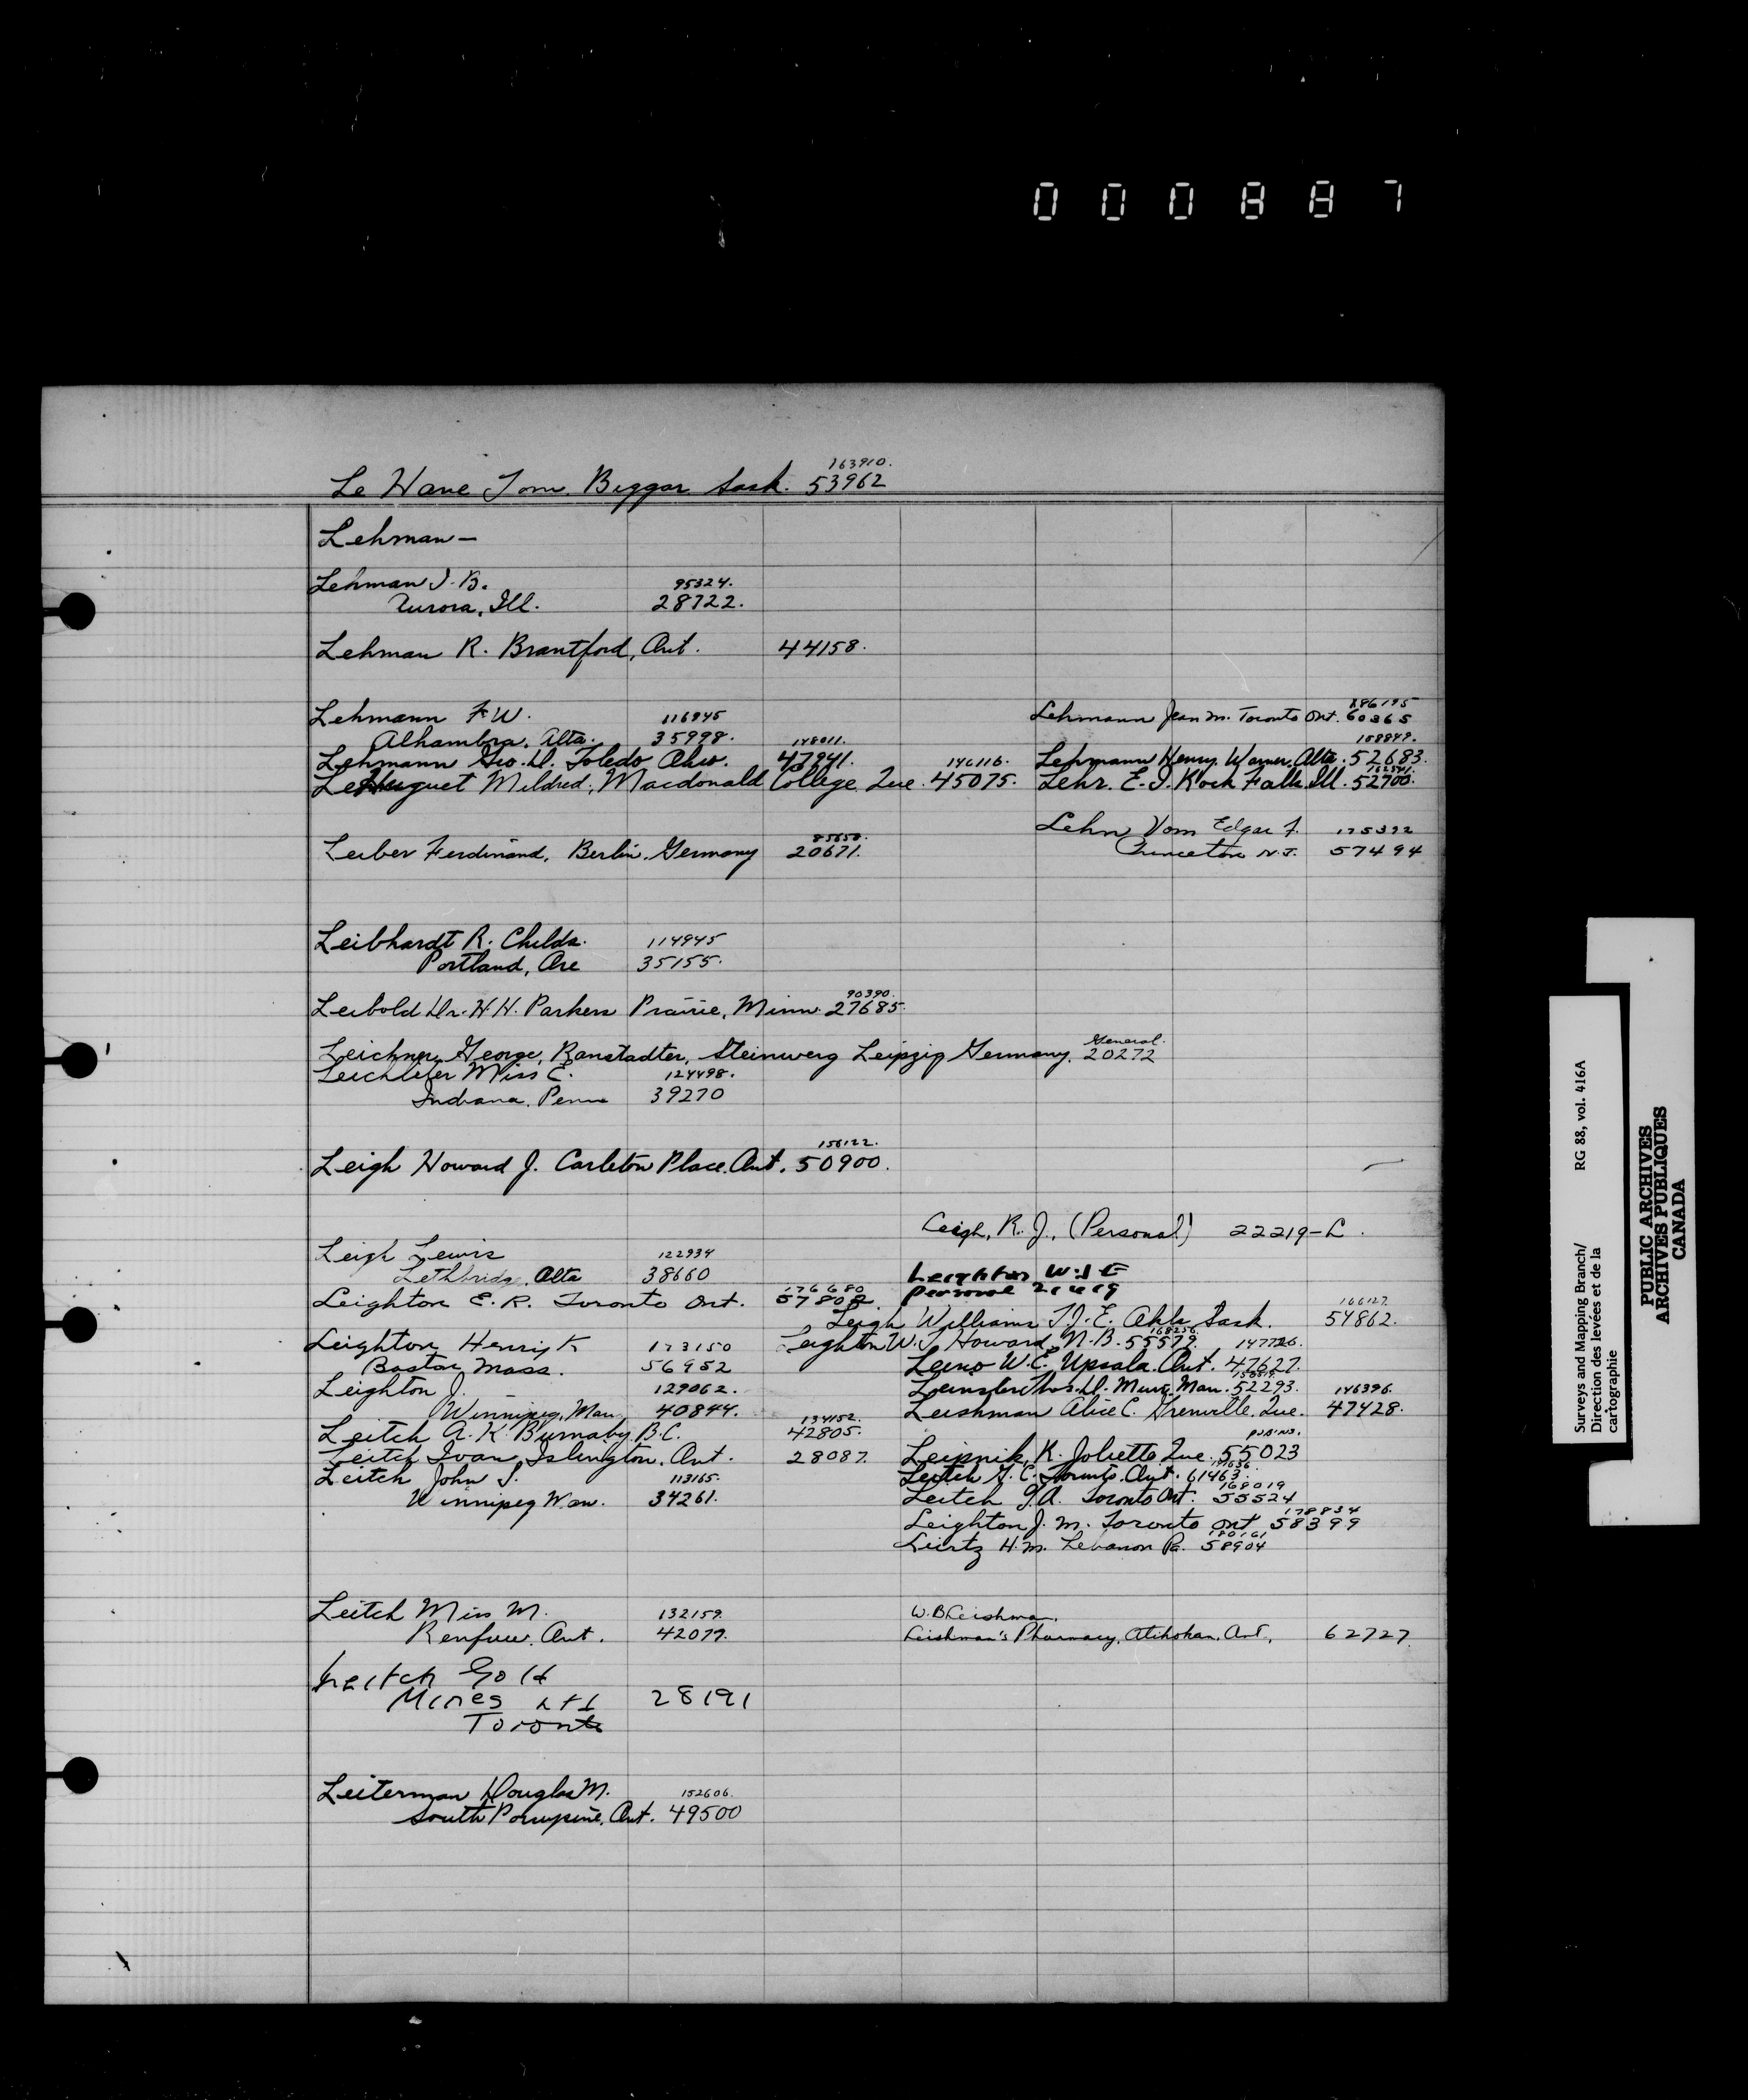 000887
163910.
Le Hane Tom. Beggar Sask. 53962
Lehman—
Lehman J. B. 95324.
Aurora, Ill. 28722.
Lehman R. Brantford, Ont. 44158.
Lehmann F W. 116945
Alhambra, Alta. 35998.
Lehmann Geo. D. Toledo Ohio. 148011. 47941.
LeHuquet Mildred, Macdonald College Que. 146116. 45075.
Lehmann Jean M. Toronto Ont. 60365
Lehmann Henry Warner, Alta. 158849. 52683.
Lehr. E. J. Rock Falls Ill. 52700.
Lehn Vom Edgar F. 175392
Princeton N.J. 57494
Leiber Ferdinand, Berlin, Germany 85658. 20671.
Leibhardt R. Childs. 114945
Portland, Ore 35155.
Leibold Dr. H H. Parkers Prairie, Minn. 90390. 27685.
Leichner, George, Ranstadter, Steinwerg Leipzig Germany. General. 20272
Leichliter Miss E. 124498.
Indiana, Penn 39270
Leigh Howard J. Carleton Place, Ont. 158122. 50900.
Leigh, R. J., (Personal) 22219-L.
Leigh Lewis 122934
Lethbridge, Alta 38660
Leighton W. J E
personal
Leighton E. R. Toronto Ont. 176680 57802.
Leigh Williams T. J. E. Sask. 166127. 54862.
Leighton Henry K 173150
Boston Mass. 56952
Leighton W. J Howard, N. B. 168256. 55579.
Leino W. E. Upsala. Ont. 147726. 47627.
Leighton J. 129062.
Winnipeg, Man 40844.
Leinster Thos. D. Man. 52293.
Leishman Alice C. Grenville, Que. 146396. 47428.
Leitch A. K. Burnaby B.C. 134152. 42805.
Leitch Ivan Islington, Ont. 28087.
Leipnik, K. Joliette Que. 55023
Leitch John S. 113165.
Winnipeg Man. 34261.
Leitch G. C. Toronto. Ont. 61463.
Leitch J. A. Toronto Ont. 168019 55524
Leighton J. M. Toronto Ont 178834 58399
H. M. Lebanon Pa. 180161 58904
Leitch Miss M. 132159.
Renfrew. Ont. 42079.
W. B Leishman.
Leishman's Pharmacy, Atikokan, Ont. 62727.
Leitch Gold
Mines Ltd 28191
Toronto
Leiterman Douglas M. 152606.
South Porcupine, Ont. 49500
Surveys and Mapping Branch/ RG 88, vol. 416A
Direction des levées et de la
cartographie
PUBLIC ARCHIVES
ARCHIVES PUBLIQUES
CANADA